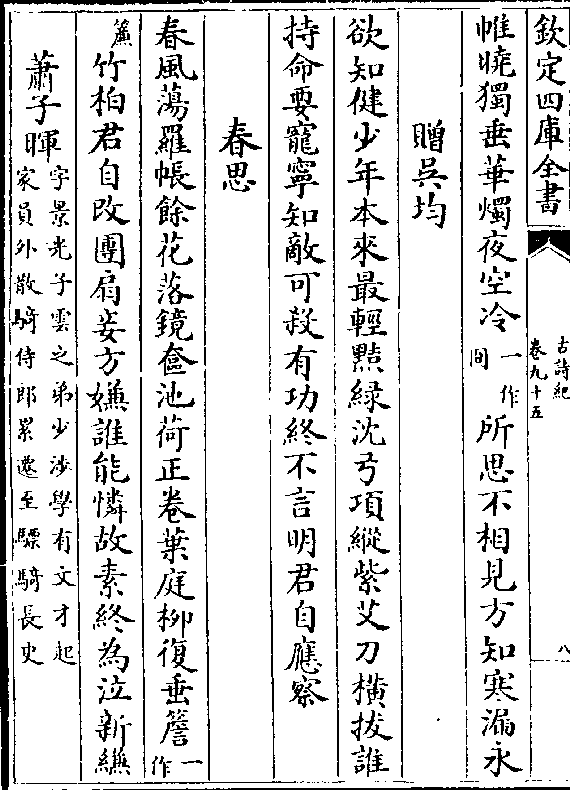 欽定四庫全書
古詩紀
卷九十五
八
帷曉獨垂華燭夜空冷一作間所思不相見方知寒漏永
贈吳均
欲知健少年本來最輕黠綠沈弓項縱紫艾刀橫拔誰
持命要寵寧知敵可殺有功終不言明君自應察
春思
春風蕩羅帳餘花落鏡奩池荷正卷葉庭柳復垂簷一作
簾竹柏君自改團扇妾方嫌誰能憐故素終為泣新縑
蕭子暉字景光子雲之弟少涉學有文才起
家員外散騎侍郎累遷至驃騎長史